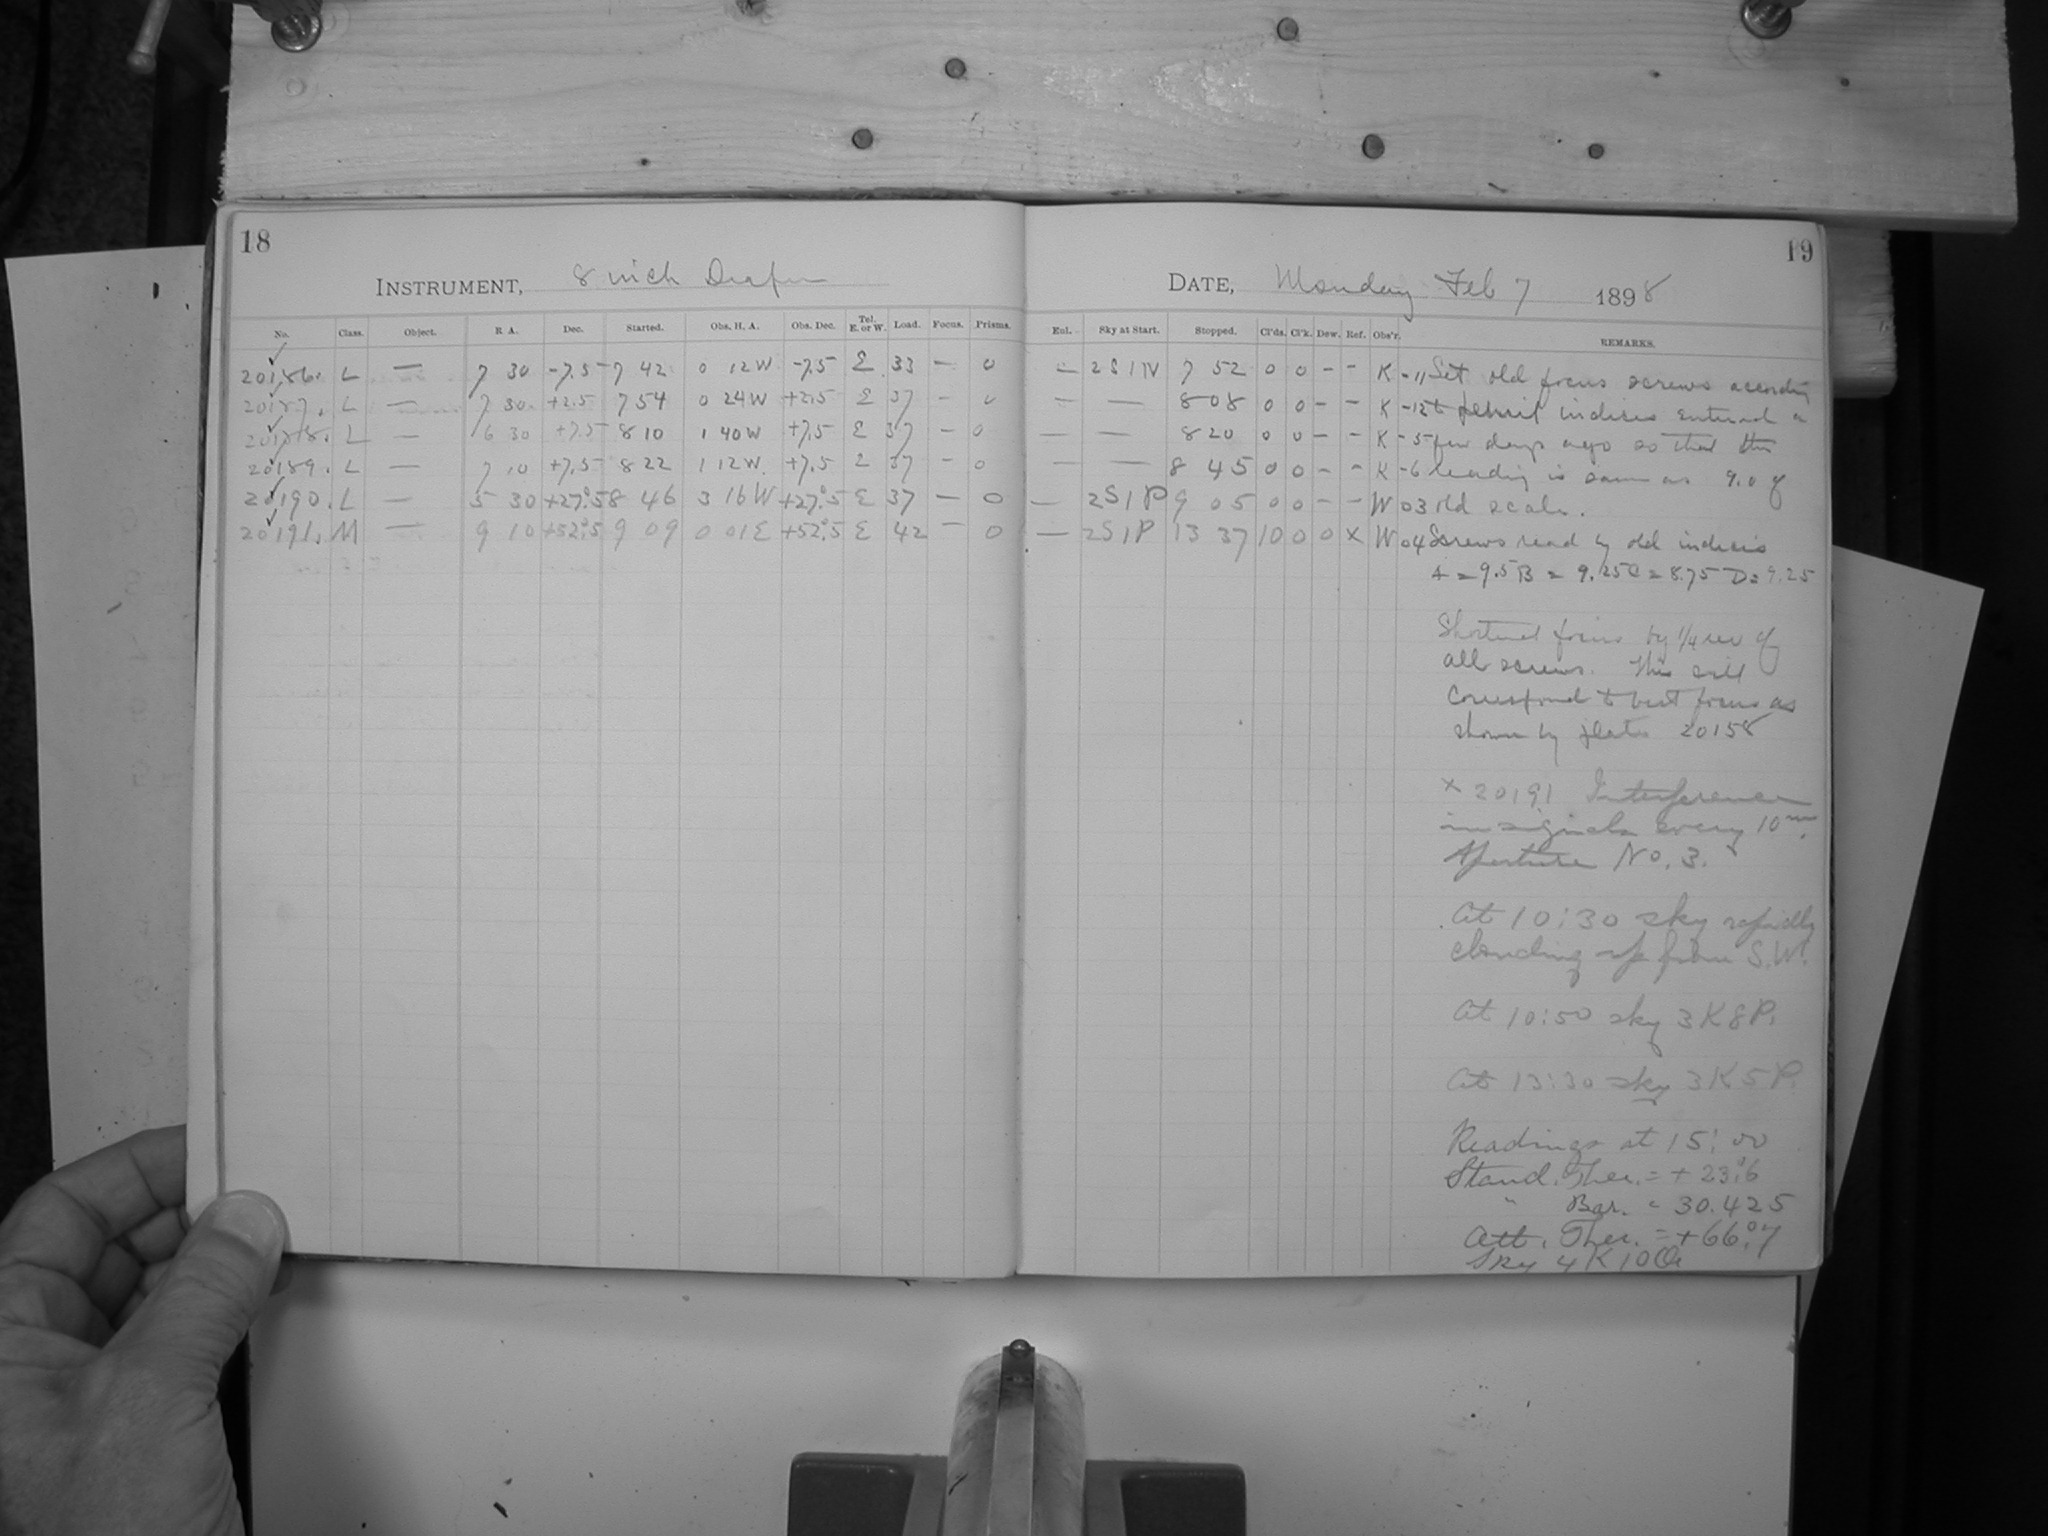 18
INSTRUMENT, 8 inch Draper
No. Class. Object. R A. Dec. Started. Obs. H. A. Obs. Dec. Tel. E. or W. Load. Focus. Prisms.
20186. L — 7 30 -7.5 7 42 0 12W -7.5 E 33 — 0
20187. L — 7 30 +2.5 7 54 0 24W +2.5 E 37 - 0
20188. L — 6 30 +7.5 8 10 1 40W +7.5 E 37 - 0
20189. L — 7 10 +7.5 8 22 1 12W. +7.5 E 37 - 0
20190. L — 5 30 +27°.5 8 46 3 16W +27°.5 E 37 — 0
20191. M — 9 10 +52°.5 9 09 0 01E +52°.5 E 42 — 0
19
DATE, Monday Feb 7 1898
Enl. Sky at Start. Stopped. Cl'ds. Cl'k. Dew. Ref. Obs'r. REMARKS.
— 2S1N 7 52 0 0 - - K -11 Set old focus screws according
— — 8 08 0 0 - - K -12 to indices entered a
— — 8 20 0 0 - - K -5 few days ago so that the
— — 8 45 0 0 - - K -6 reading is same as 9.0 of
— 2S1P 9 05 0 0 - - W 03 old scale.
— 2S1P 13 37 10 0 0 x W 04 Screws read by old indices
A = 9.5 B = 9.25 C = 8.75 D = 9.25
Shortened focus by 1/4 rev of
all screws. This will
correspond to best focus as
shown by plate 20158
x 20191 Interference
in signals every 10m.
Aperture No. 3.
At 10:30 sky rapidly
clouding up from S.W.
At 10:50 sky 3K8P.
At 13:30 sky 3K5P.
Readings at 15:00
Stand. Ther. = + 23°.6
" Bar. = 30.425
Att. Ther. = +66°.7
Sky 4K10